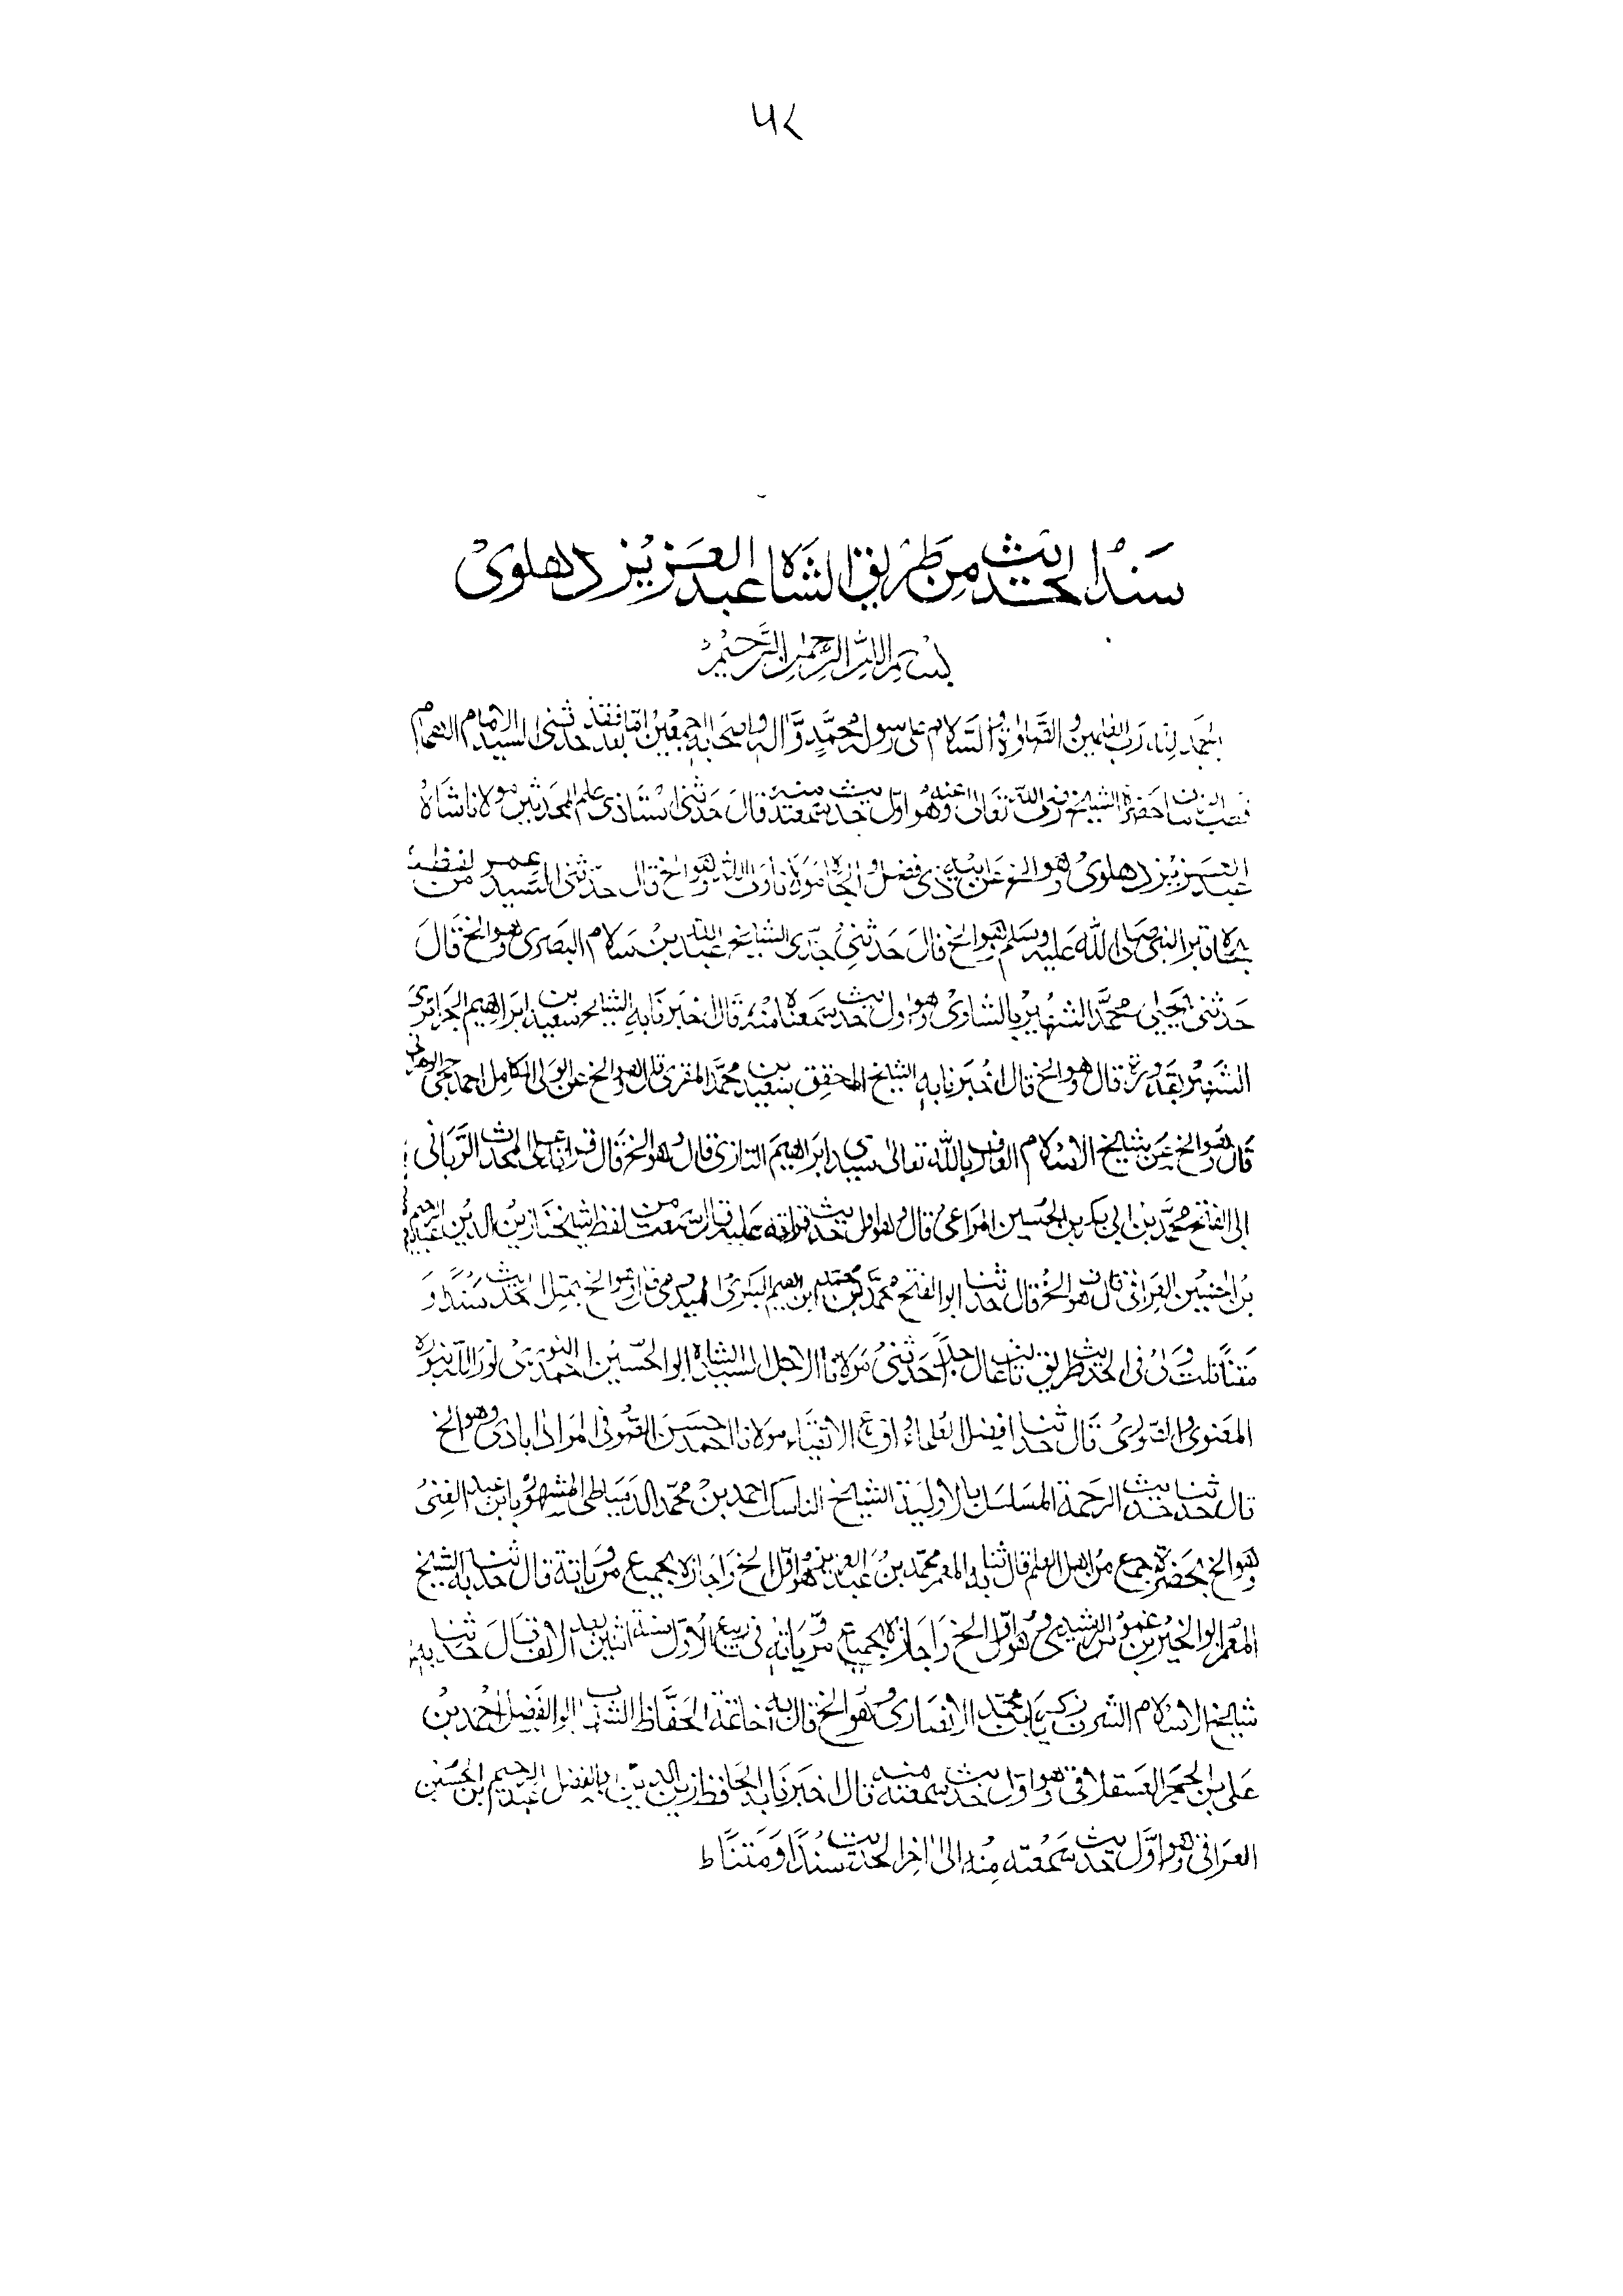 سند الحديث من طريق الشاه عبد العزيز دهلوى
بسم الله الرحمن الرحيم
الحمد لله رب العلمين والصلوة والسلام على رسوله محمد واله واصحابه اجمعين اما بعد فقد حدثنى السيد الامام الهمام
حضرة الشيخ رضى الله تعالى عنه وهو اول حديث سمعته منه قال حدثنى استاذى علم المحدثين مولانا شاه
عبد العزيز دهلوى وهو الخ عن ابيه ذى فضل والجاه مولانا ولى الله وهو الخ قال حدثنى السيد عمر من لفظه
تجاه قبر النبى صلى الله عليه وسلم وهو الخ قال حدثنى جدى الشيخ عبد الله بن سلام البصرى وهو الخ قال
حدثنى يحيى بن محمد الشهير بالشاوى وهو اول حديث سمعناه منه قال اخبرنا به الشيخ سعيد بن ابراهيم الجزائرى
الشهير بقدورة قال وهو الخ قال اخبرنا به الشيخ المحقق سعيد بن محمد المقرى قال وهو الخ عن الولى الكامل احمد حجى الوهرانى
قال وهو الخ عن شيخ الاسلام العارف بالله تعالى سيدى ابراهيم التازى قال وهو الخ قال قرأنا على المحدث الربانى
ابى الفتح محمد بن ابى بكر بن الحسين المراغى قال وهو اول حديث قرأته عليه قال سمعت من لفظ شيخنا زين الدين عبد الرحيم
بن الحسين العراقى قال وهو الخ قال حدثنا ابو الفتح محمد بن محمد ابن ابراهيم البكرى الميدومى قال وهو الخ بمثل الحديث سندا و
متنا قلت ولى فى الحديث طريق ثالث عال جدا حدثنى مولانا الاجل السيد الشاه ابو الحسين احمد النورى نور الله بنوره
المعنوى والصورى قال حدثنا افضل العلماء اورع الاتقياء مولانا احمد حسن الصوفى المراد ابادى وهو الخ
قال حدثنا حديث الرحمة المسلسل بالاولية الشيخ الناسك احمد بن محمد الدمياطى المشهور بابن عبد الغنى
وهو الخ بحضرة جمع من اهل العلم قال ثنا به المعمر محمد بن عبد العزيز وهو اول الخ واجازه بجميع مروياته قال حدثنا به الشيخ
المعمر ابو الخير بن عموس الرشيدى وهو اول الخ واجازه بجميع مروياته فى ربيع الاول سنة اثنين بعد الالف قال حدثنا به
شيخ الاسلام الشرف زكريا بن محمد الانصارى وهو الخ قال به خاتمة الحفاظ الشهاب ابو الفضل احمد بن
على بن الحجر العسقلانى وهو اول حديث سمعته منه قال اخبرنا به الحافظ زين الدين ابو الفضل عبد الرحيم بن الحسين
العراقى وهو اول حديث سمعته منه الى اخر الحديث سندا ومتنا ط